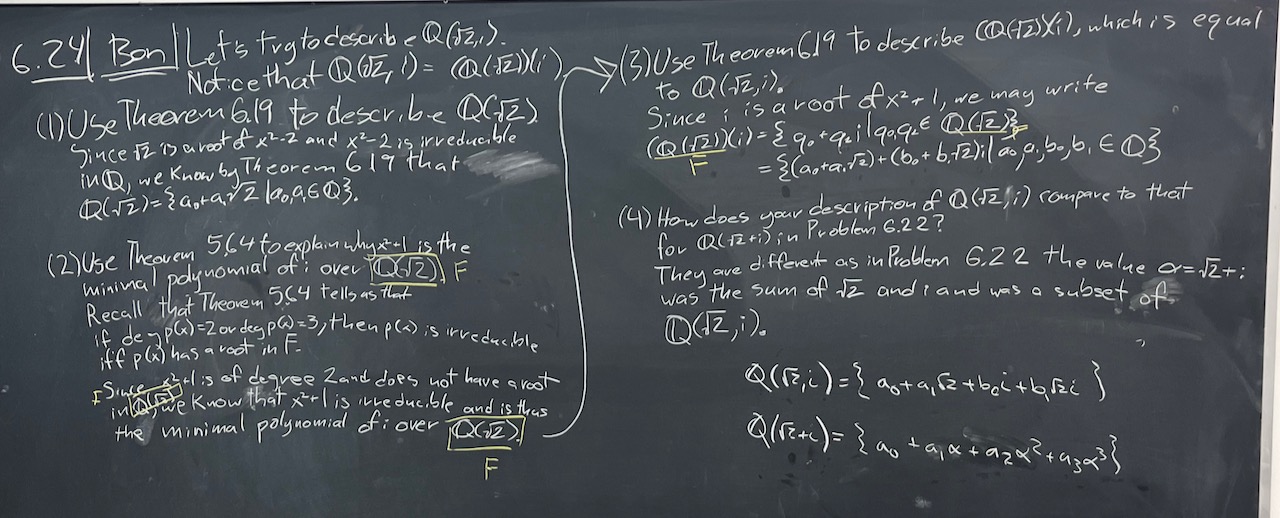 6.24 Ben Let's try to describe Q(√2,i).
Notice that Q(√2,i) = (Q(√2))(i)
(1) Use Theorem 6.19 to describe Q(√2)
Since √2 is a root of x²-2 and x²-2 is irreducible
in Q, we know by Theorem 6.19 that
Q(√2) = {a₀+a₁√2 | a₀,a₁∈Q}.
(2) Use Theorem 5.64 to explain why x²+1 is the
minimal polynomial of i over Q(√2). F
Recall that Theorem 5.64 tells us that
if deg p(x)=2 or deg p(x)=3, then p(x) is irreducible
iff p(x) has a root in F.
Since x²+1 is of degree 2 and does not have a root
F in Q(√2), we know that x²+1 is irreducible and is thus
the minimal polynomial of i over Q(√2).
F
(3) Use Theorem 6.19 to describe (Q(√2))(i), which is equal
to Q(√2,i).
Since i is a root of x²+1, we may write
(Q(√2))(i) = {q₀+q₁i | q₀,q₁∈ Q(√2)}
F F
= {(a₀+a₁√2)+(b₀+b₁√2)i | a₀,a₁,b₀,b₁ ∈ Q}
(4) How does your description of Q(√2,i) compare to that
for Q(√2+i) in Problem 6.22?
They are different as in Problem 6.22 the value α=√2+i
was the sum of √2 and i and was a subset of
Q(√2,i).
Q(√2,i) = { a₀+a₁√2+b₀i+b₁√2i }
Q(√2+i) = { a₀+a₁α+a₂α²+a₃α³}